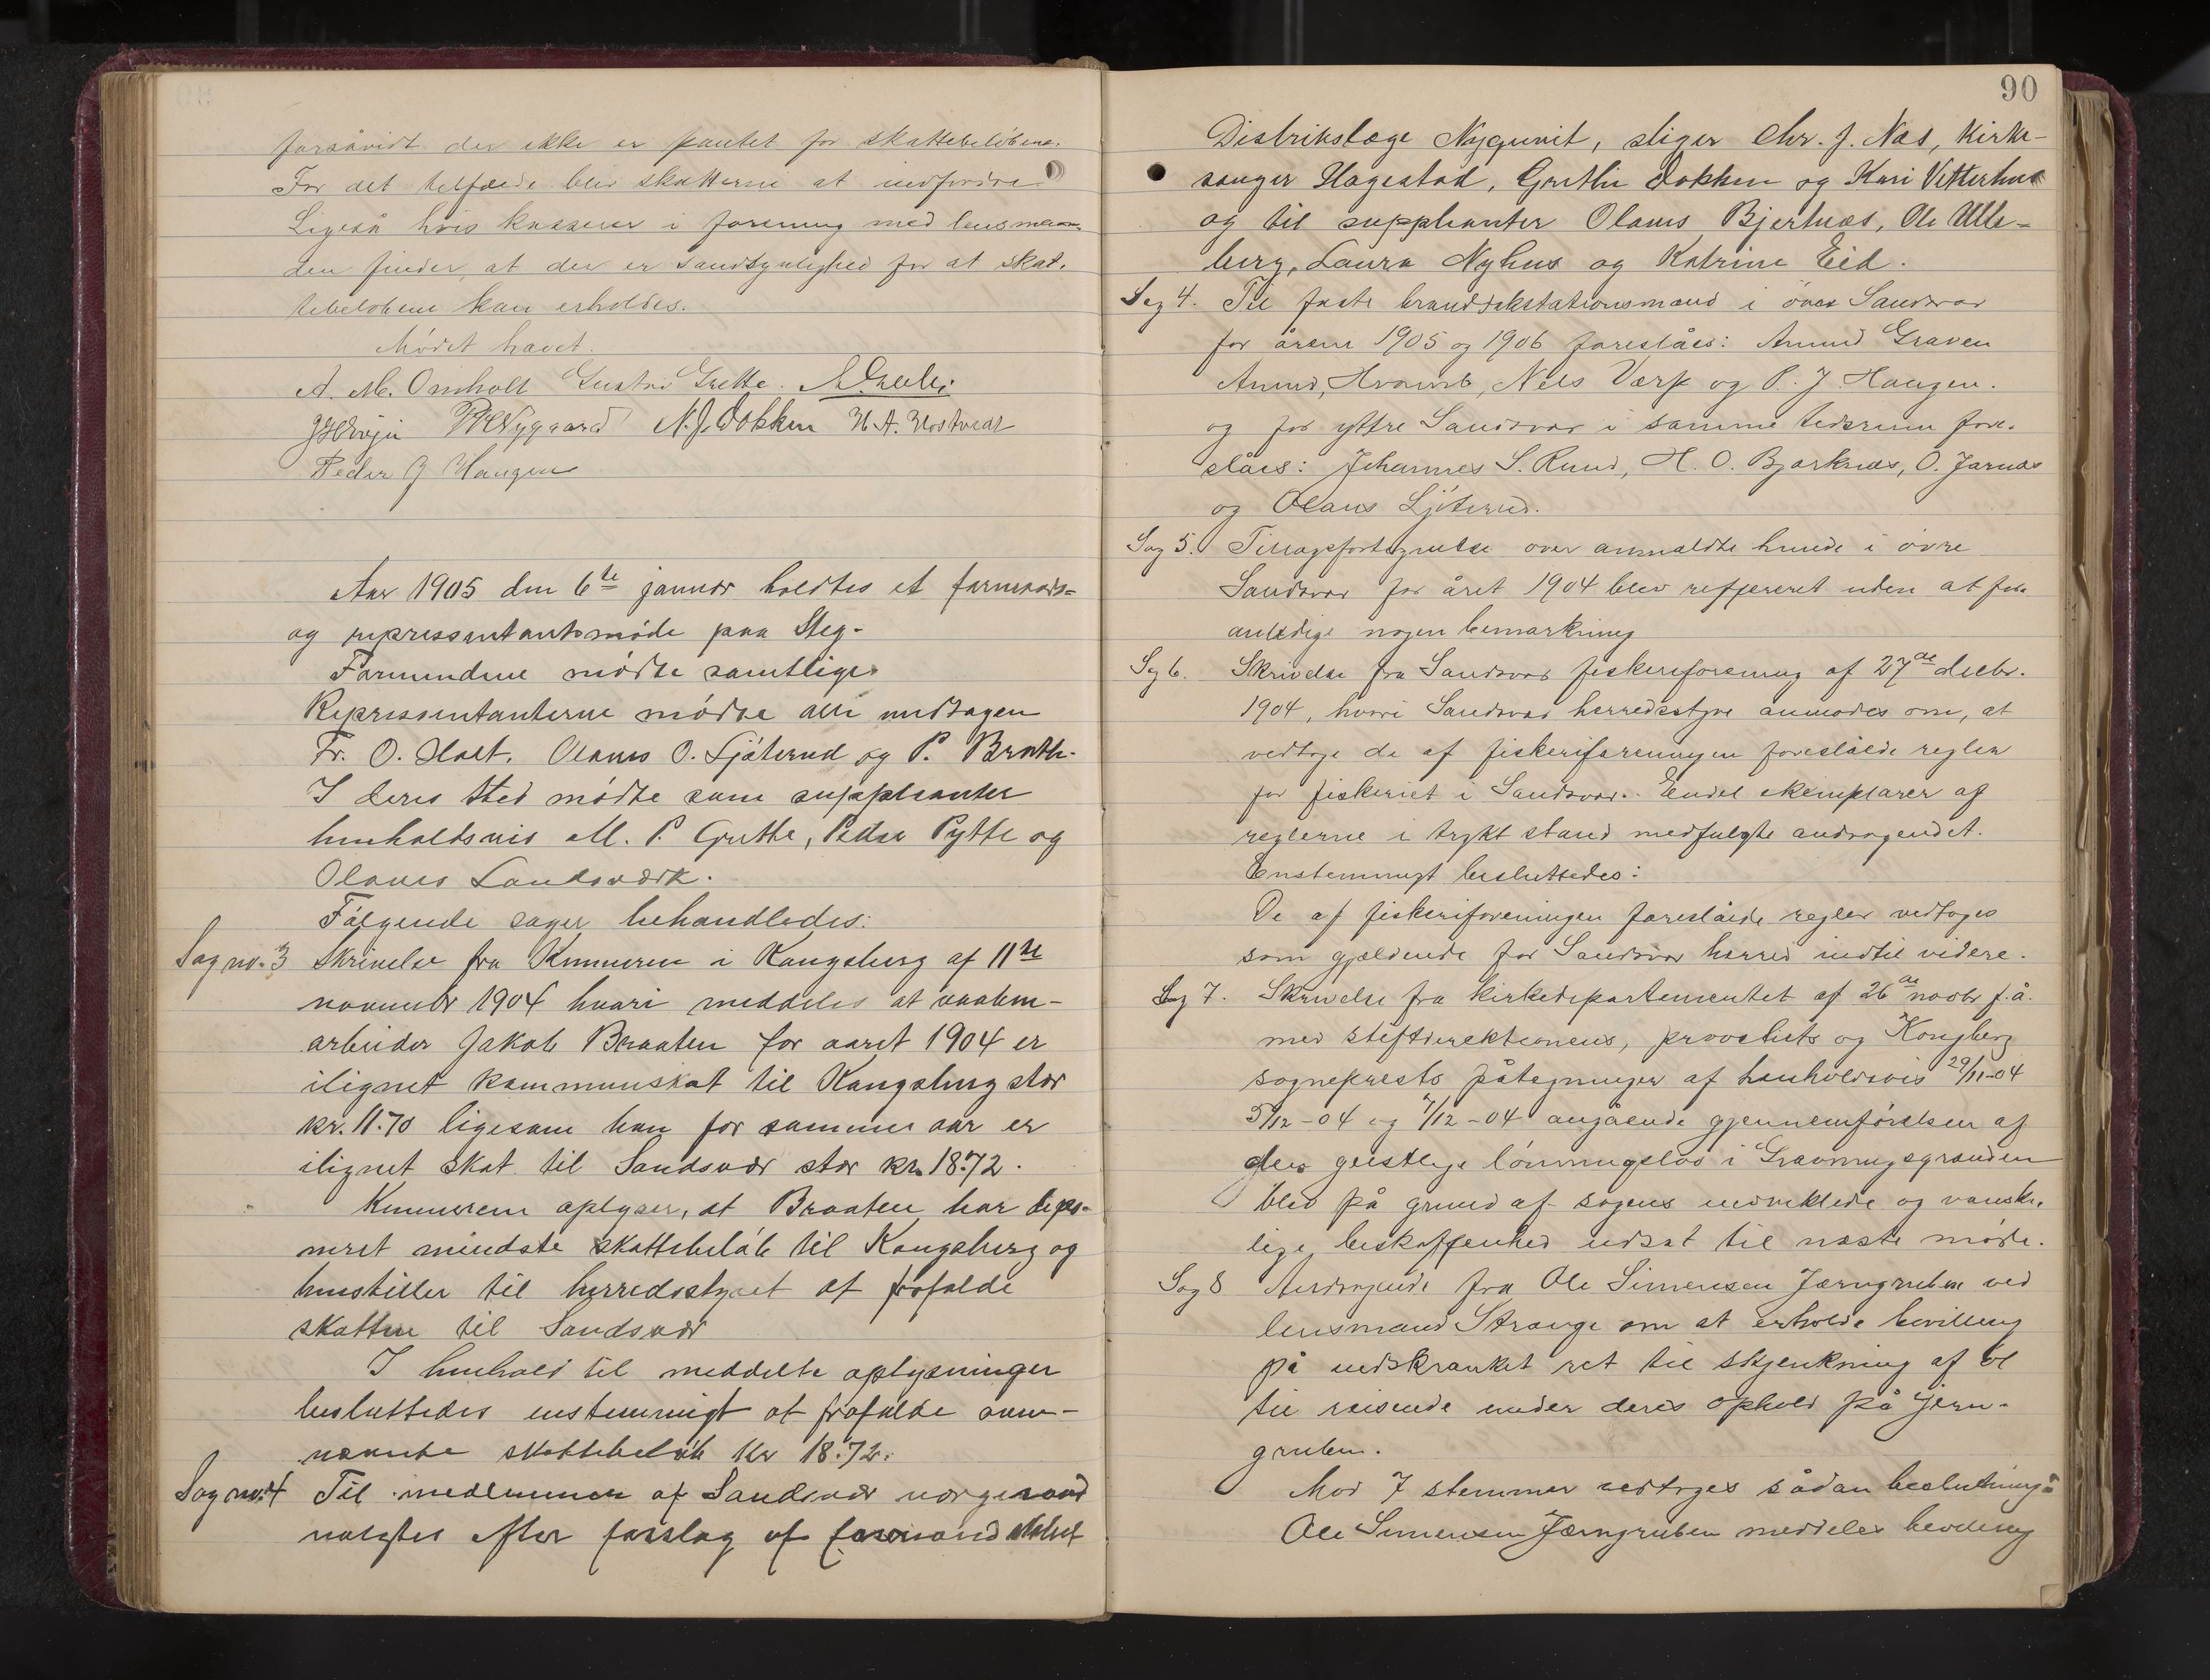 forsåvidt der ikke er pantet for skattebeløbene.
For det tilfælde blir skatterne at indfordre.
Ligeså hvis kasserer i forening med lensman-
den finder, at der er sandsynlighed for at skat-
tebeløbene kan erholdes.
Mødet hævet.
A. M. Omholt Gustav Grette.
PRNygaard N. J. Dokken H. A. Kostvedt
Peder J Haugen
Aar 1905 den 6te januar holdtes et formands-
og representantmøde paa Steg.
Formændene mødte samtlige.
Representanterne mødte alle undtagen
Fr. O. Holt. Olaus O. Ljøterud og P. Brath.
I deres sted mødte som supplianter
henholdsvis M. P. Grette, Peder Pytte og
Olaves Landsværk.
Følgende sager behandledes:
Sag no. 3 Skrivelse fra Kemneren i Kongsberg af 11te
november 1904 hvori meddeles at vaaben-
arbeider Jakob Braaten for aaret 1904 er
ilignet kommuneskat til Kongsberg stor
kr. 11.70 ligesom han for samme aar er
ilignet skat til Sandsvær stor kr. 18.72.
Kemneren oplyser, at Braaten har depo-
neret mindste skattebeløb til Kongsberg og
henstiller til herredsstyret at frafalde
skatten til Sandsvær
I henhold til meddelte oplysninger
besluttedes enstemmigt at frafalde oven-
nævnte skattebeløb kr 18.72.
Sag no. 4 Til medlemmer af Sandsvær værgeraad
valgtes efter forslag af formandskabet
90
Distriktslæge Nyquvist, stiger Chr. J. Næs, Kirke-
sanger Hagestad, Grethe Dokken og Kari Vitterhus
og til supplianter Olaus Bjertnæs, Ole Ulle-
berg, Laura Nyhus og Katrine Eid.
Sag 4. Til faste brandtakstationsmænd i øvre Sandsvær
for årene 1905 og 1906 foreslåes: Amund Graven
Amund Hvamb, Nils Værp og P. J. Haugen.
og for yttre Sandsvær i samme tidsrum fore-
slåes: Johannes S. Rund, H. O. Bjørknæs, O. Jarnæs
og Olaus Ljøterud.
Sag 5. Tillægsfortegnelse over anmældte hunde i øvre
Sandsvær for året 1904 blev reffereret uden at for-
anledige nogen bemærkning
Sag 6. Skrivelse fra Sandsvær fiskeriforening af 27de decbr.
1904, hvori Sandsvær herredsstyre anmodes om, at
vedtage de af fiskeriforeningen foreslåede regler
for fiskeriet i Sandsvær. Endel eksemplarer af
reglerne i trykt stand medfulgte andragendet.
Enstemmigt besluttedes:
De af fiskeriforeningen foreslåede regler vedtages
som gjældende for Sandsvær herred indtil videre.
Sag 7. Skrivelse fra kirkedepartementet af 26de novbr f.å.
med stiftdirektionens, provstiets og Kongsberg
sogneprests påtegninger af henholdsvis 29/11-04
5/12-04 og 7/12-04 angående gjennemførelsen af
den geistlige lønningslov i Gravningsgrænden
blev på grund af sagens indviklede og vanske-
lige beskaffenhed udsat til næste møde.
Sag 8 Andragende fra Ole Simensen Jærngruben ved
lensmand Strange om at erholde bevilling
på indskrænket ret til skjenkning af øl
til reisende under deres ophold på Jern-
gruben.
Mod 7 stemmer vedtoges sådan beslutning:
Ole Simensen Jærngruben meddeles bevilling